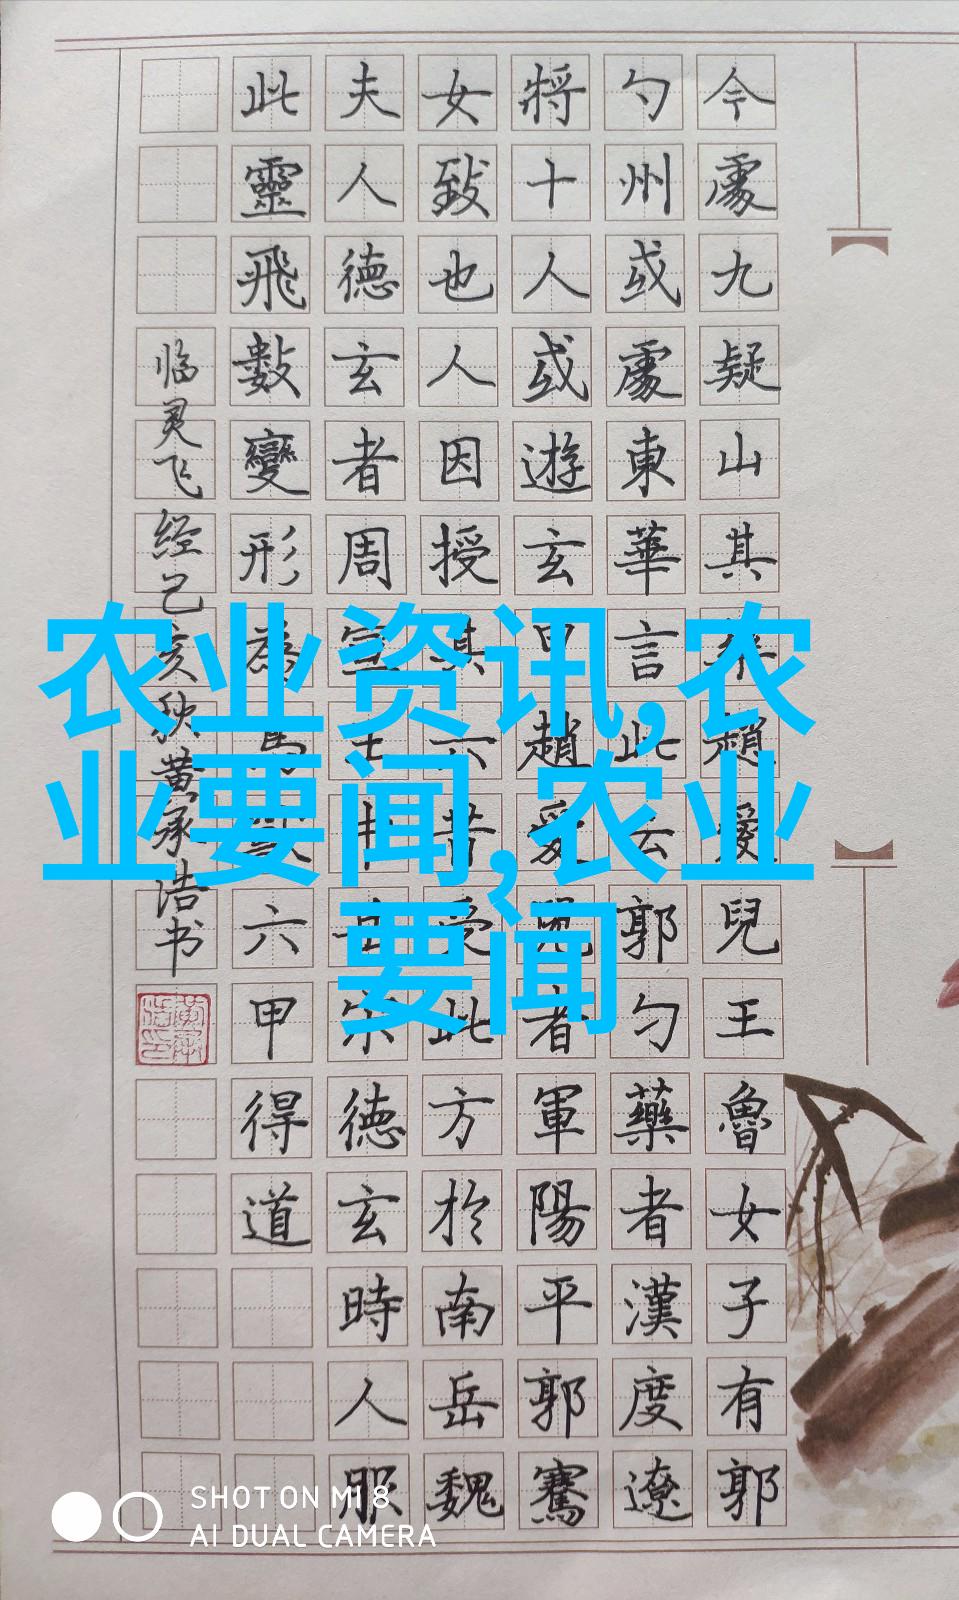 今處九疑山其趙愛兒王魯女子有郭
勺州或處東華言此云郭勺藥者漢度遼
將十人或遊玄趙愛兒者軍陽平郭騫
女致也人因授其六昔受此方於南岳魏
夫人德玄者周宣宋德玄時人服
此靈飛數變形為六甲得道
临灵飞经己亥秋黄承浩书
农业资讯,农
业要闻,农业
要闻
SHOT ON MI 8
AI DUAL CAMERA